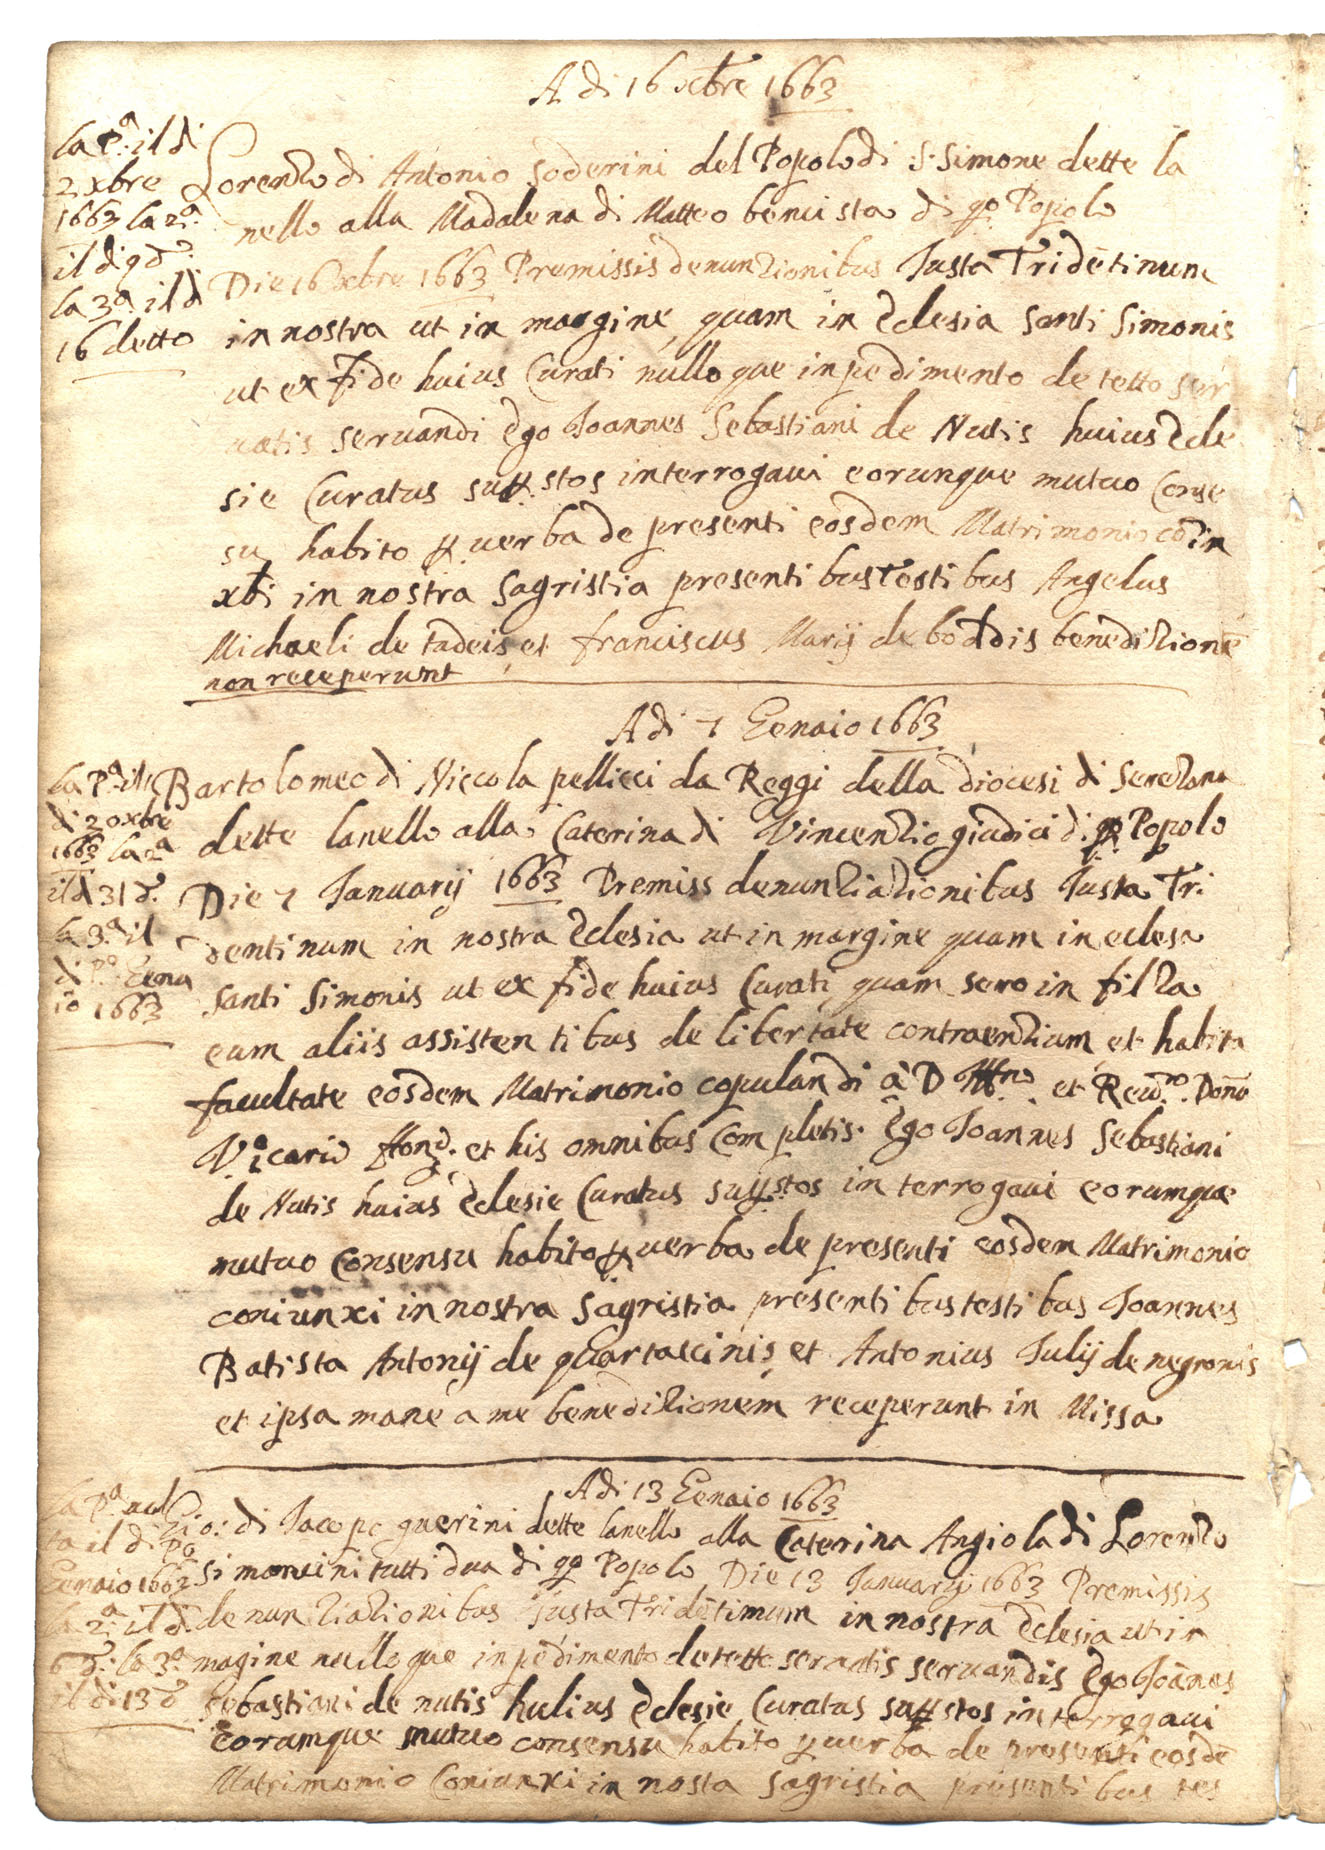 A di 16 xbre 1663
la Pª. il di
2 xbre
1663 la 2ª.
il di 9 dº.
la 3ª. il di
16 detto
Lorenzo di Antonio soderini del Popolo di S. Simone dette la
nello alla Madalena di Matteo bencista di qo Popolo
Die 16 xbre 1663 Premissis denunzionibus Justa Tridētinum
in nostra ut in margine, quam in Eclesia Santi Simonis
ut ex fide huius Curati nulloque inpedimento detetto ser
uatis seruandi Ego Joannes Sebastiani de Nutis huius Ecle
sie Curatus supp.stos interrogaui eorunque mutuo Conse
su habito p uerba de presenti eosdem Matrimonio cōiun
xi in nostra Sagristia presentibus Testibus Angelus
Michaeli de tadeis et franciscus Marij de boddis benedizionē
non receperunt
A di 7 Genaio 1663
la Pª. il
di 20 xbre
1663 la 2ª
il di 31 dº.
la 3ª. il
di Pº. Gena
io 1663
Bartolomeo di Niccola pellicci da Reggi della diocesi di Serezana
dette lanello alla Caterina di Vincenzio giudici di qo Popolo
Die 7 Januarij 1663 Premiss denunziazionibus Justa Tri
dentinum in nostra Eclesia ut in margine quam in eclesa
Santi Simonis ut ex fide huius Curati quam sero in filza
cum aliis assistentibus de libertate contraenzium et habita
facultate eosdem Matrimonio copulandi à D Illmo. et Reudmo. Domo
Vicario et his omnibus Completis. Ego Joannes Sebastiani
de Nutis huius Eclesie Curatus supp.stos interrogaui eorumque
mutuo Consensu habito p uerba de presenti eosdem Matrimonio
coniunxi in nostra Sagristia presentibus testibus Joannes
Batista Antonij de quartaccinis et Antonius Julij de negronis
et ipsa mane a me benedizionem receperunt in Missa
A di 13 Genaio 1663
la Pª.
il di Pº
Genaio 1663
la 2ª. il di
6 dº. la 3ª.
il di 13 dº
Gio: di Jacopo guerini dette lanello alla Caterina Angiola di Lorenzo
Simoncini tutti dua di qo Popolo Die 13 Januarij 1663 Premissis
denunziazionibus Justa Tridētimum in nostra Eclesia ut in
magine nulloque inpedimento detetto seruatis seruandis Ego Joānes
Sebastiani de nutis huius Eclesie Curatus supp.stos interrogaui
eorumque mutuo consensu habito p uerba de presenti eosdē
Matrimonio Coniunxi in nosta sagristia presentibus tes